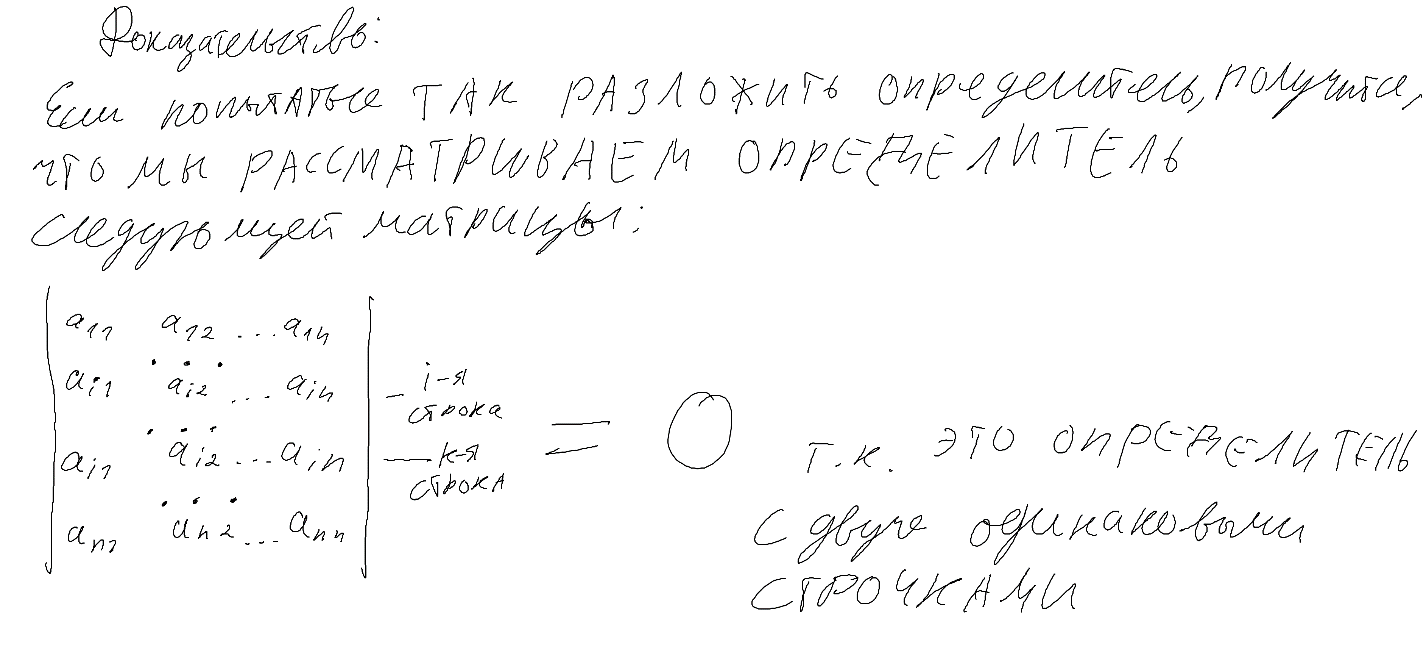 Доказательство:
Если попытаться ТАК РАЗЛОЖИТЬ определитель, получится,
что мы РАССМАТРИВАЕМ ОПРЕДЕЛИТЕЛЬ
следующей матрицы:
a11 a12 ... a1n
. . .
ai1 ai2 ... ain — i-я строка
. . .
ai1 ai2 ... ain — к-я СТРОКА
. . .
an1 an2 ... ann
= 0 т.к. ЭТО ОПРЕДЕЛИТЕЛЬ
с двумя одинаковыми
СТРОЧКАМИ